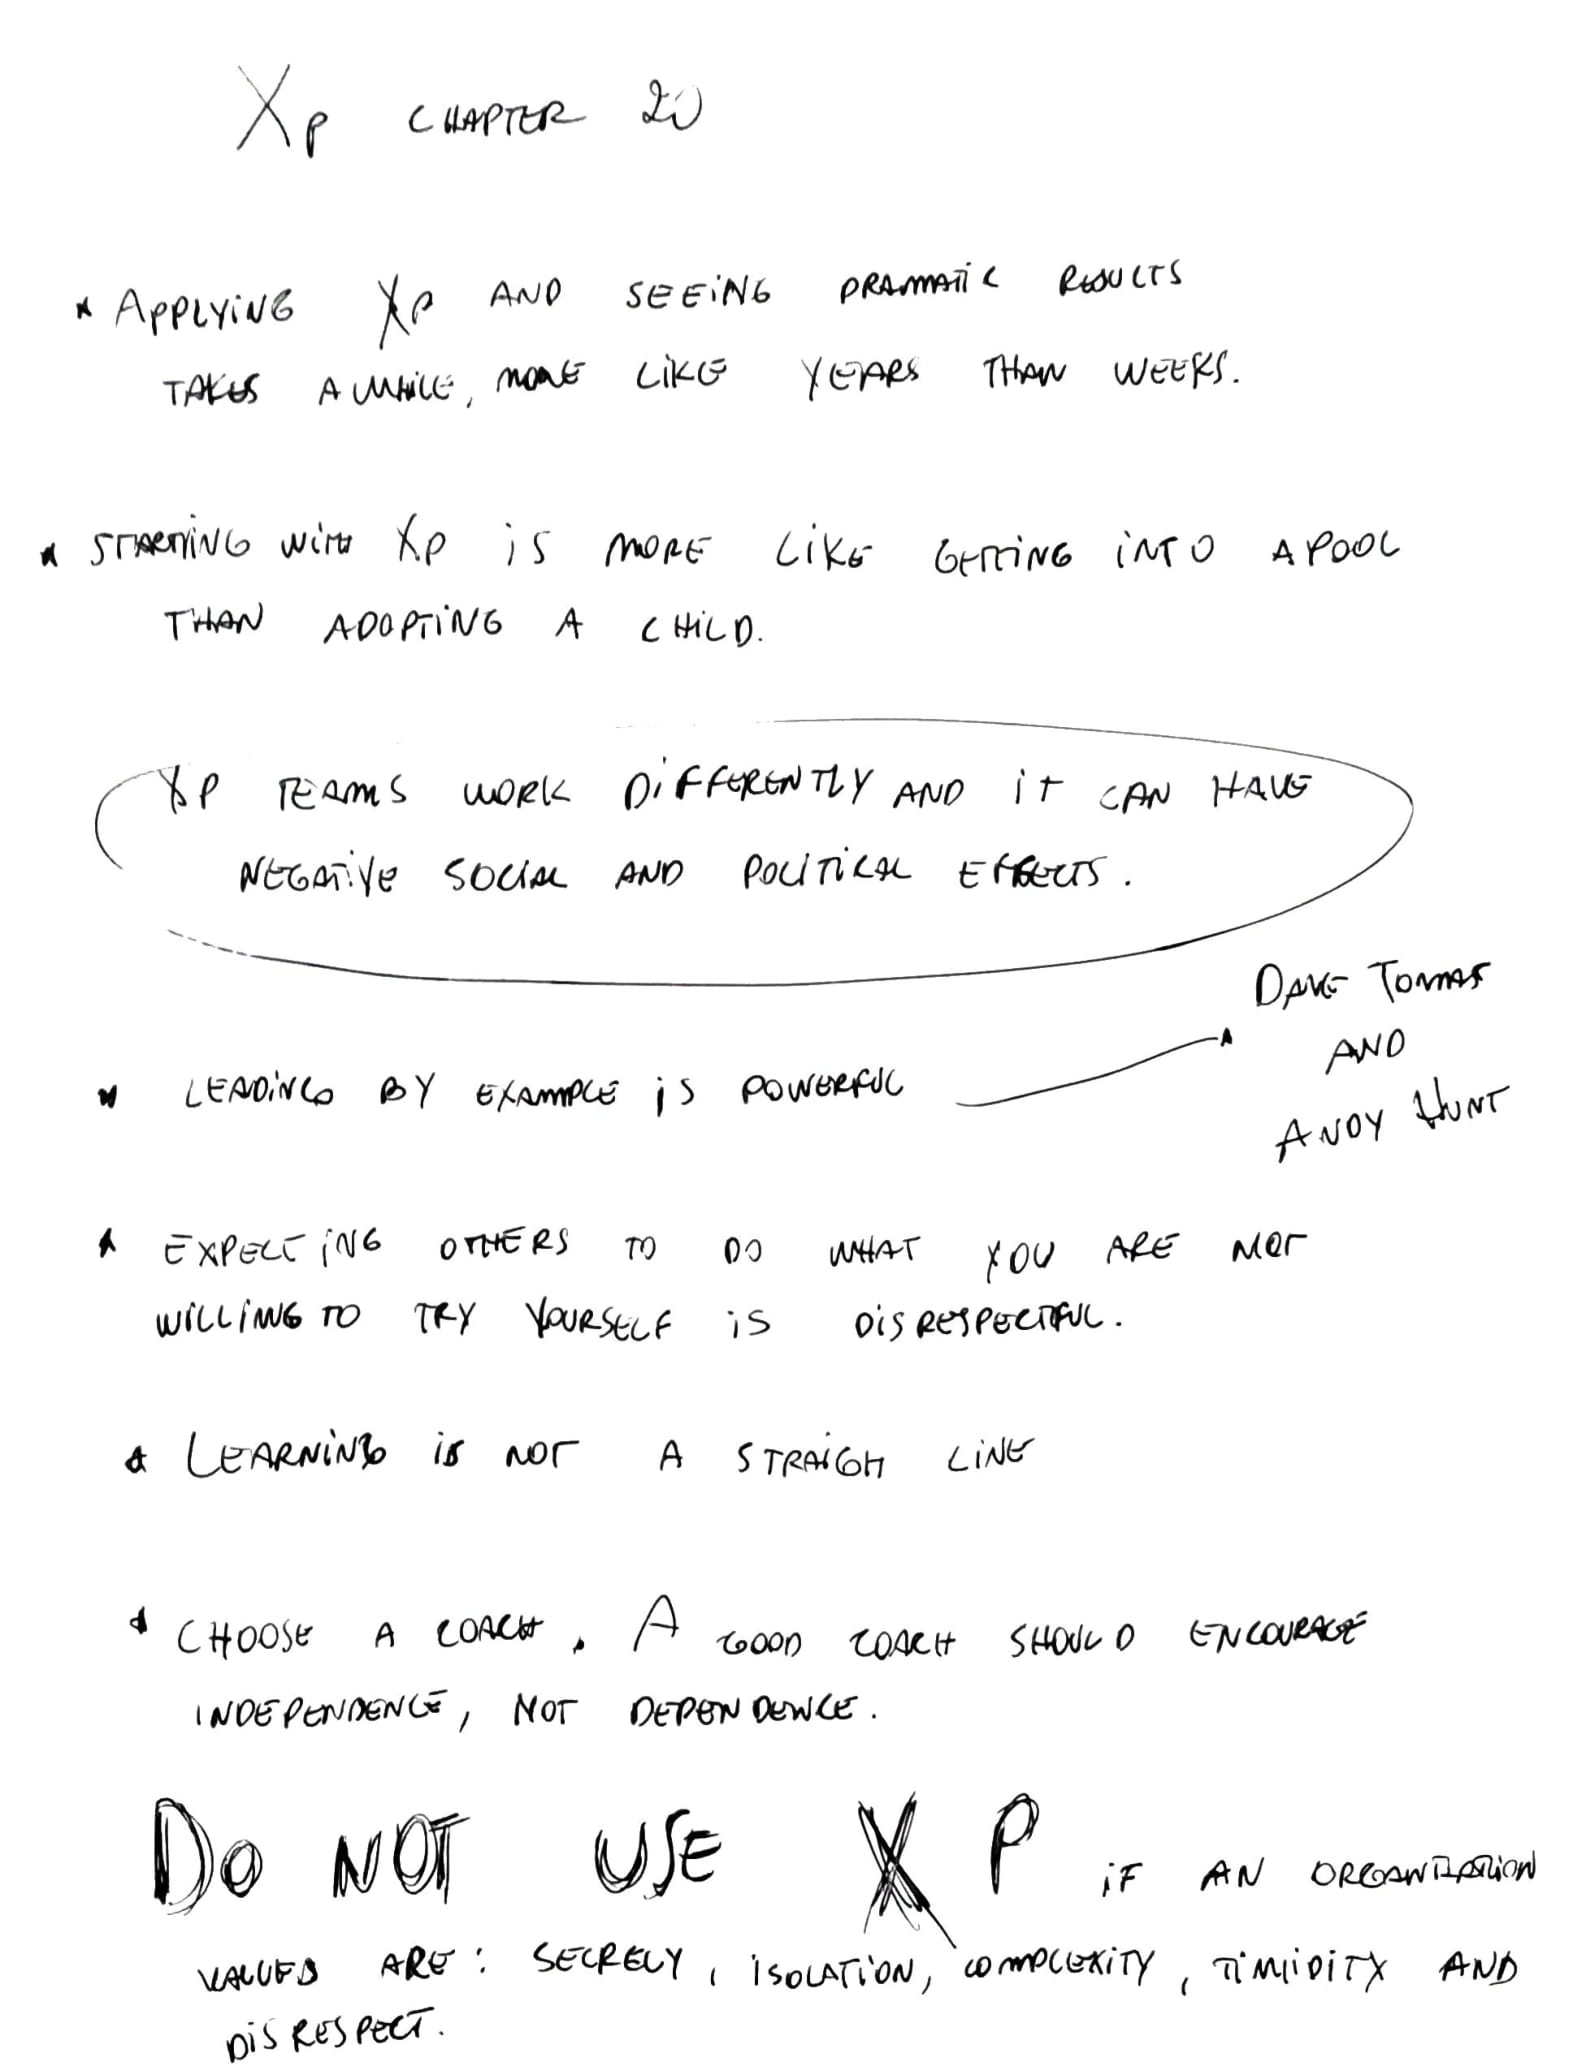 XP CHAPTER 20
* APPLYING XP AND SEEING DRAMATIC RESULTS
TAKES A WHILE, MORE LIKE YEARS THAN WEEKS.
* STARTING WITH XP IS MORE LIKE GETTING INTO A POOL
THAN ADOPTING A CHILD.
XP TEAMS WORK DIFFERENTLY AND IT CAN HAVE
NEGATIVE SOCIAL AND POLITICAL EFFECTS.
* LEADING BY EXAMPLE IS POWERFUL
DAVE TOMAS
AND
ANDY HUNT
* EXPECTING OTHERS TO DO WHAT YOU ARE NOT
WILLING TO TRY YOURSELF IS DISRESPECTFUL.
* LEARNING IS NOT A STRAIGH LINE
* CHOOSE A COACH. A GOOD COACH SHOULD ENCOURAGE
INDEPENDENCE, NOT DEPENDENCE.
DO NOT USE XP IF AN ORGANIZATION
VALUES ARE: SECRECY, ISOLATION, COMPLEXITY, TIMIDITY AND
DISRESPECT.